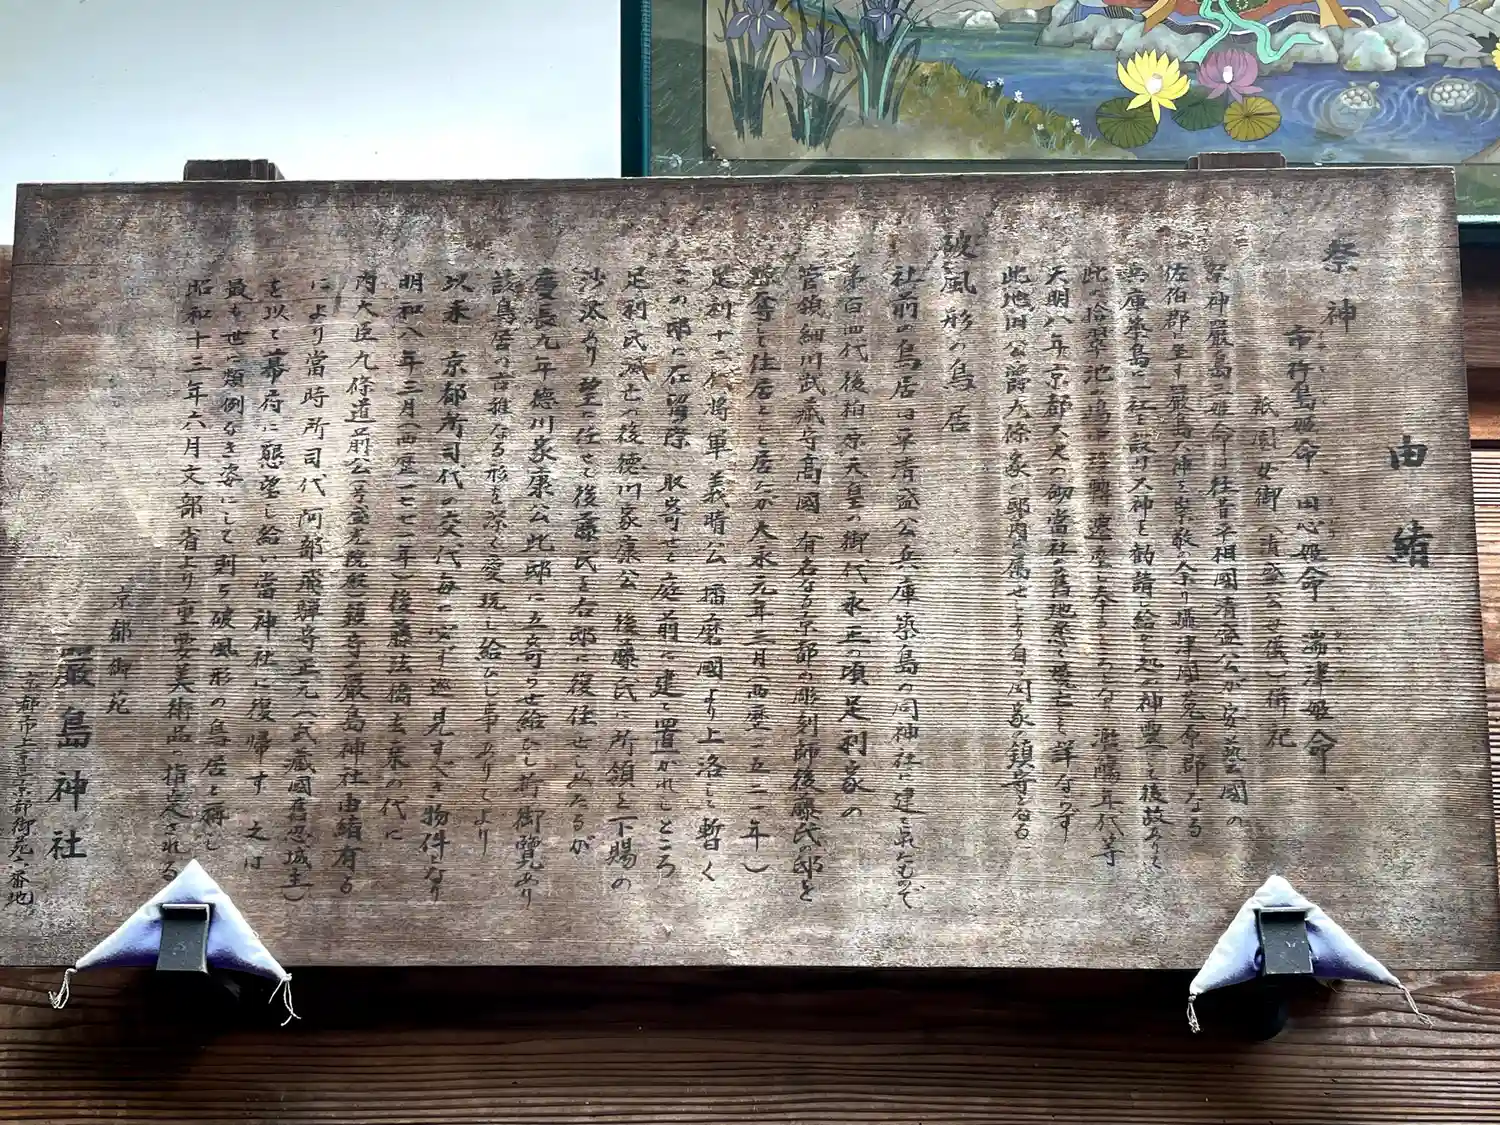 由緒
祭神
市杵島姫命、田心姫命、湍津姫命、
祇園女御(清盛公母儀)併祀
祭神厳島三姫命は往昔平相國清盛公が安藝國の
佐伯郡に坐す厳島大神を崇敬の余り攝津國菟原郡なる
兵庫築島に一社を設け大神を勧請し給ひし処 神霊 後故ありて
此 拾翠池の島に 遷座し奉 濫觴年代等
天明八年京都大火の砌當社も舊地悉く焼亡し詳ならず
此地旧公爵九條家の邸内に属せしより自ら同家の鎮守となる
破風形の鳥居
社前の鳥居は平清盛公兵庫築島の同神社に建 られたもので
第百四代後柏原天皇の御代永正の頃足利家の
管領細川武蔵守高國 有名なる京都の彫刻師後藤氏の邸を
して住居として居たが大永元年三月(西歴一五二一年)
足利十二代将軍義晴公 播磨國より上洛して暫く
この邸に在留の際 取寄せて庭前に建て置かれしところ
足利氏滅亡の後徳川家康公 後藤氏に所領を下賜の
沙汰あり 望に任せて後藤氏を右邸に復住せしめたるが
慶長九年徳川家康公此邸に立寄らせ給ひし折御覧あり
該鳥居の古雅なる形を深く愛玩し給ひし事ありてより
以来 京都所司代の交代毎に必ず巡見すべき物件となり
明和八年三月(西歴一七七一年)後藤法橋去来の代に
内大臣九條道前公(号盛光院殿)鎮守の厳島神社由緒有る
により當時所司代阿部飛騨守正允(武蔵國舊忍城主)
を以て幕府に懇望し給い當神社に復帰す 之は
最も世に類例なき姿にして則ち破風形の鳥居と称し
昭和十三年六月文部省より重要美術品に指定される
京都御苑
厳島神社
京都市上京区京都御苑六番地